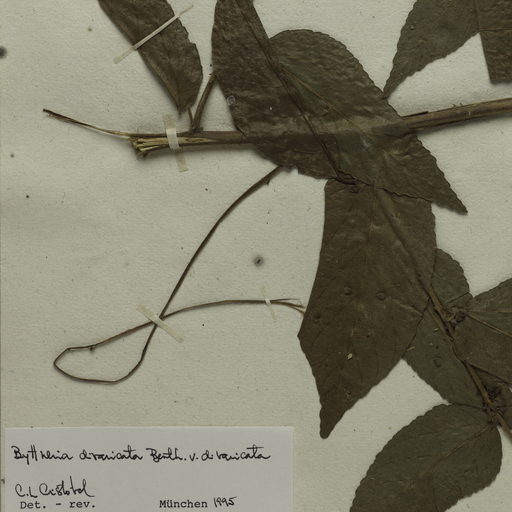 Byttneria divaricata Benth. v. divaricata
C.L. Cristobal
Det. - rev. München 1995